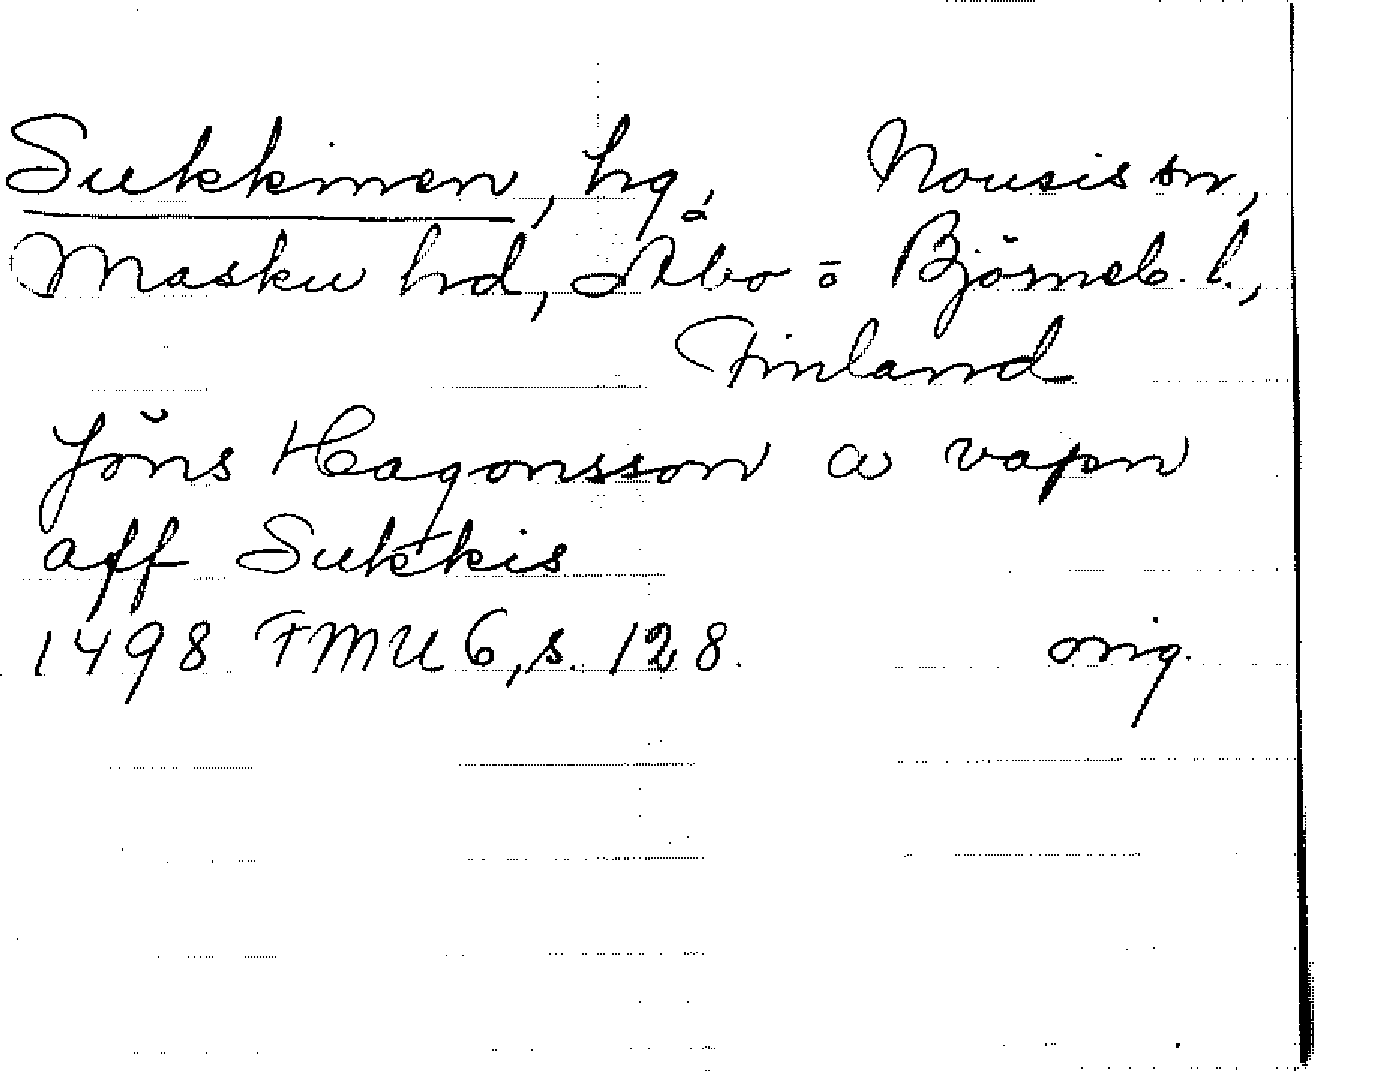 Sukkinen, hg, Nousis sn,
Masku hd, Åbo o Björneb. l.,
Finland
Jöns Hagonsson a vapn
aff Sukkis
1498 FMU 6, s. 128. orig.